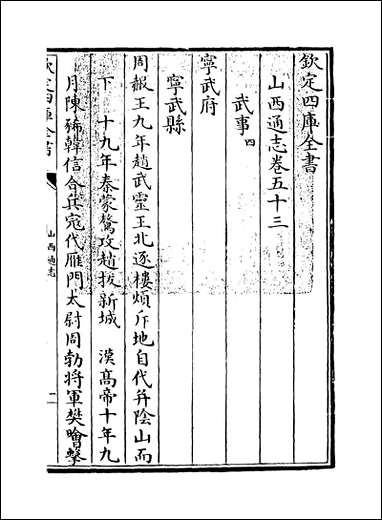 欽定四庫全書
山西通志卷五十三
武事四
寧武府
寧武縣
周赧王九年趙武靈王北逐樓煩斥地自代并陰山而
下 十九年秦蒙驁攻趙拔新城 漢高帝十年九
月陳豨韓信合兵宼代雁門太尉周勃將軍樊噲擊
欽定四庫全書
山西通志